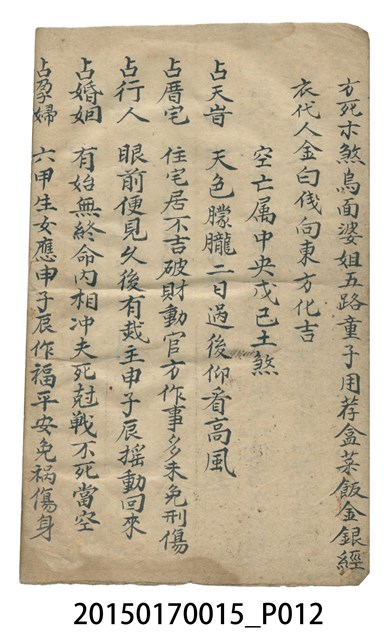 方死木煞鳥面婆姐五路童子用荐盒菜飯金銀經
衣代人金白伐向東方化吉
空亡属中央戊己土煞
占天時 天色朦朧二日過後仰看高風
占厝宅 住宅居不吉破財動官方作事多未免刑傷
占行人 眼前便見久後有哉主申子辰摇動回來
占婚姻 有始無終命内相冲夫死尅戦不死當空
占孕婦 六甲生女應申子辰作福平安免禍傷身
20150170015_P012